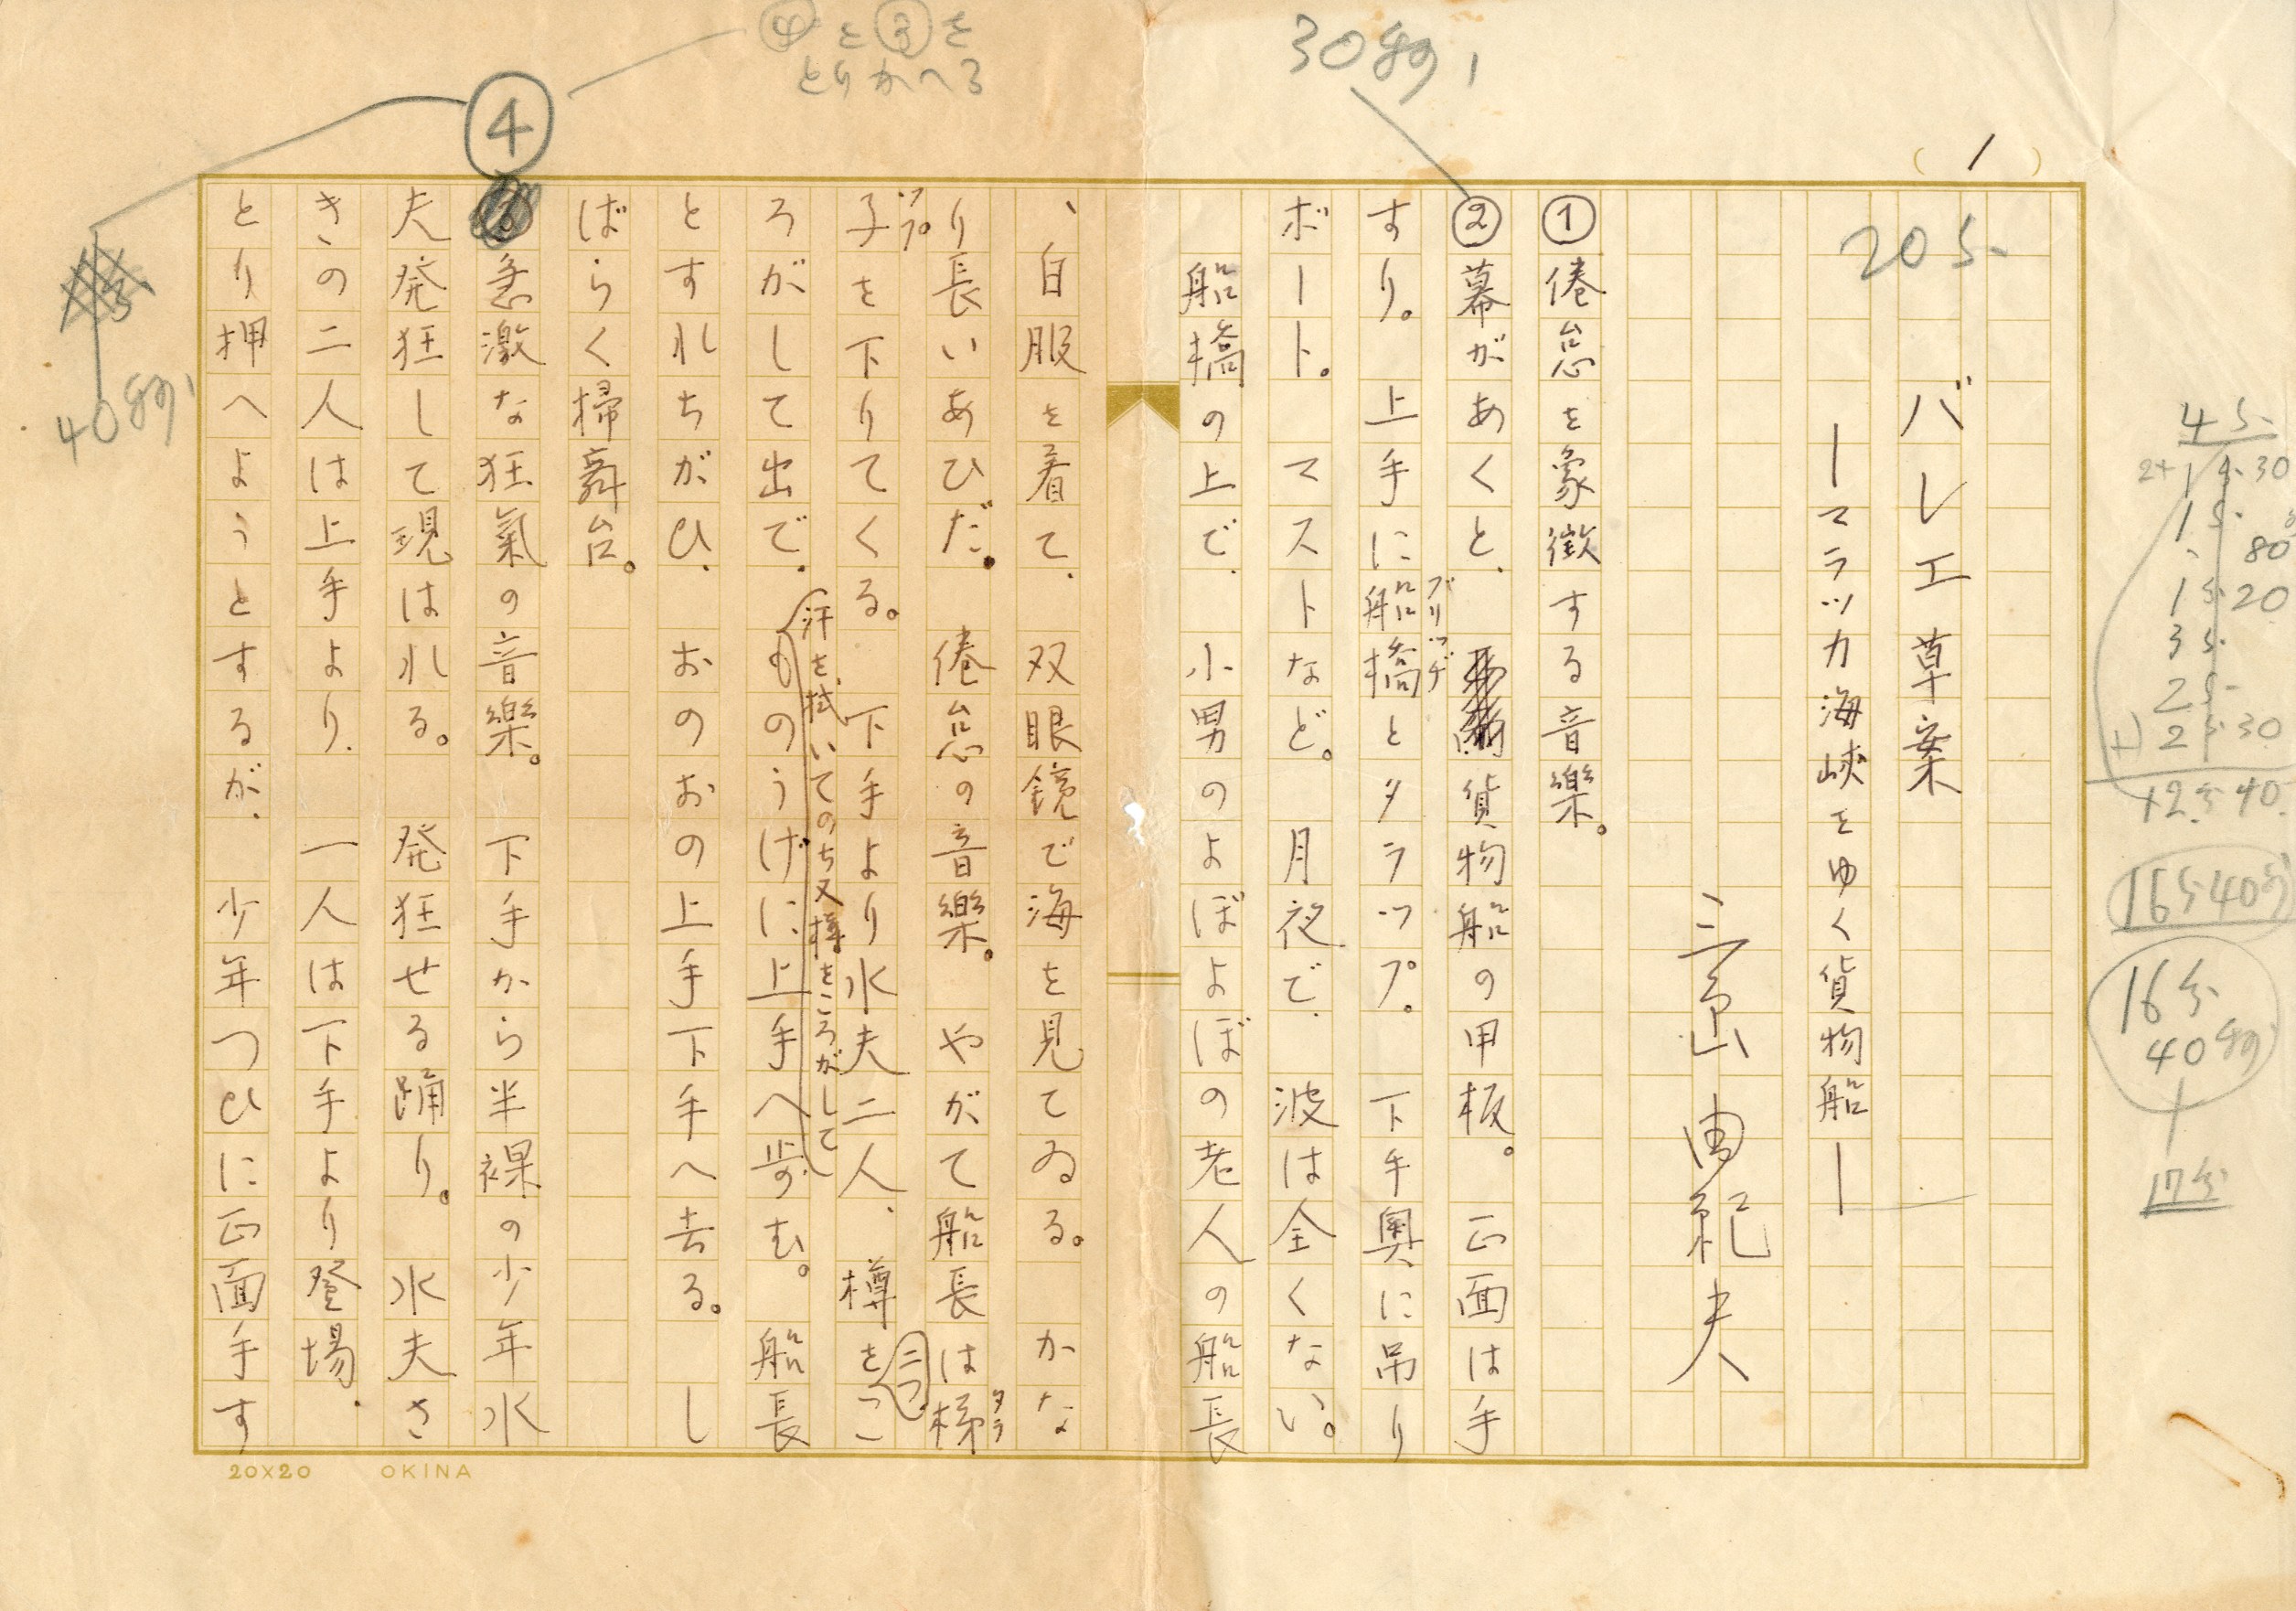 (1)
20分
バレエ草案
ーマラッカ海峡をゆく貨物船ー
三島由紀夫
①倦怠を象徴する音樂。
30秒
②幕があくと、貨物船の甲板。正面は手
すり。上手に船橋とタラップ。下手奥に吊り
ブリッヂ
ボート。マストなど。月夜で、波は全くない。
船橋の上で、小男のよぼよぼの老人の船長
、白服を着て、双眼鏡で海を見てゐる。かな
り長いあひだ。倦怠の音樂。やがて船長は梯
タラ
子を下りてくる。下手より水夫二人、樽をこ
ップ
二つ
ろがして出で、ものうげに上手へ歩む。船長
汗を拭いてのち又樽をころがして
とすれちがひ、おのおの上手下手へ去る。し
ばらく掃舞台。
④と③を
とりかへる
④
急激な狂氣の音樂。下手から半裸の少年水
夫発狂して現はれる。発狂せる踊り。水夫さ
きの二人は上手より、一人は下手より登場、
とり押へようとするが、少年つひに正面手す
40秒
4分
2+1分30
1分
80
1分20
3分
2分
+)2分30
12分40
16分40秒
16分
40秒
17分
20×20 OKINA